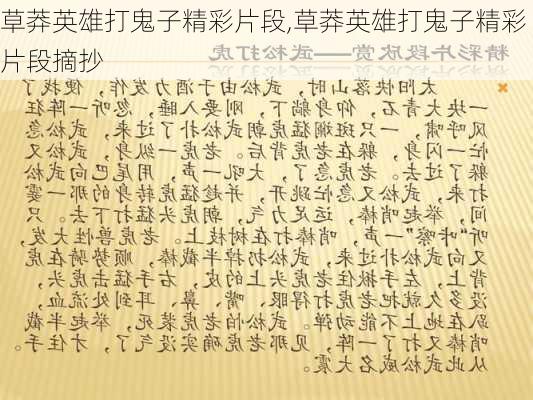 草莽英雄打鬼子精彩片段,草莽英雄打鬼子精彩
片段摘抄
精彩片段欣赏——武松打虎
太阳快落山时，武松由于酒力发作，便找了
一块大青石，仰身躺下，刚要入睡，忽听一阵狂
风呼啸，一只斑斓猛虎朝武松扑了过来，武松急
忙一闪身，躲在老虎背后。老虎一纵身，武松又
躲了过去。老虎急了，大吼一声，用尾巴向武松
打来，武松又急忙跳开，并趁猛虎转身的那一霎
间，举起哨棒，运足力气，朝虎头猛打下去。只
听“咔嚓”一声，哨棒打在树枝上。老虎兽性大发，
又向武松扑过来，武松扔掉半截棒，顺势骑在虎
背上，左手揪住老虎头上的皮，右手猛击虎头，
没多久就把老虎打得眼、嘴、鼻、耳到处流血，
趴在地上不能动弹。武松怕老虎装死，举起半截
哨棒又打了一阵，见那老虎确实没气了，才住手。
从此武松威名大震。